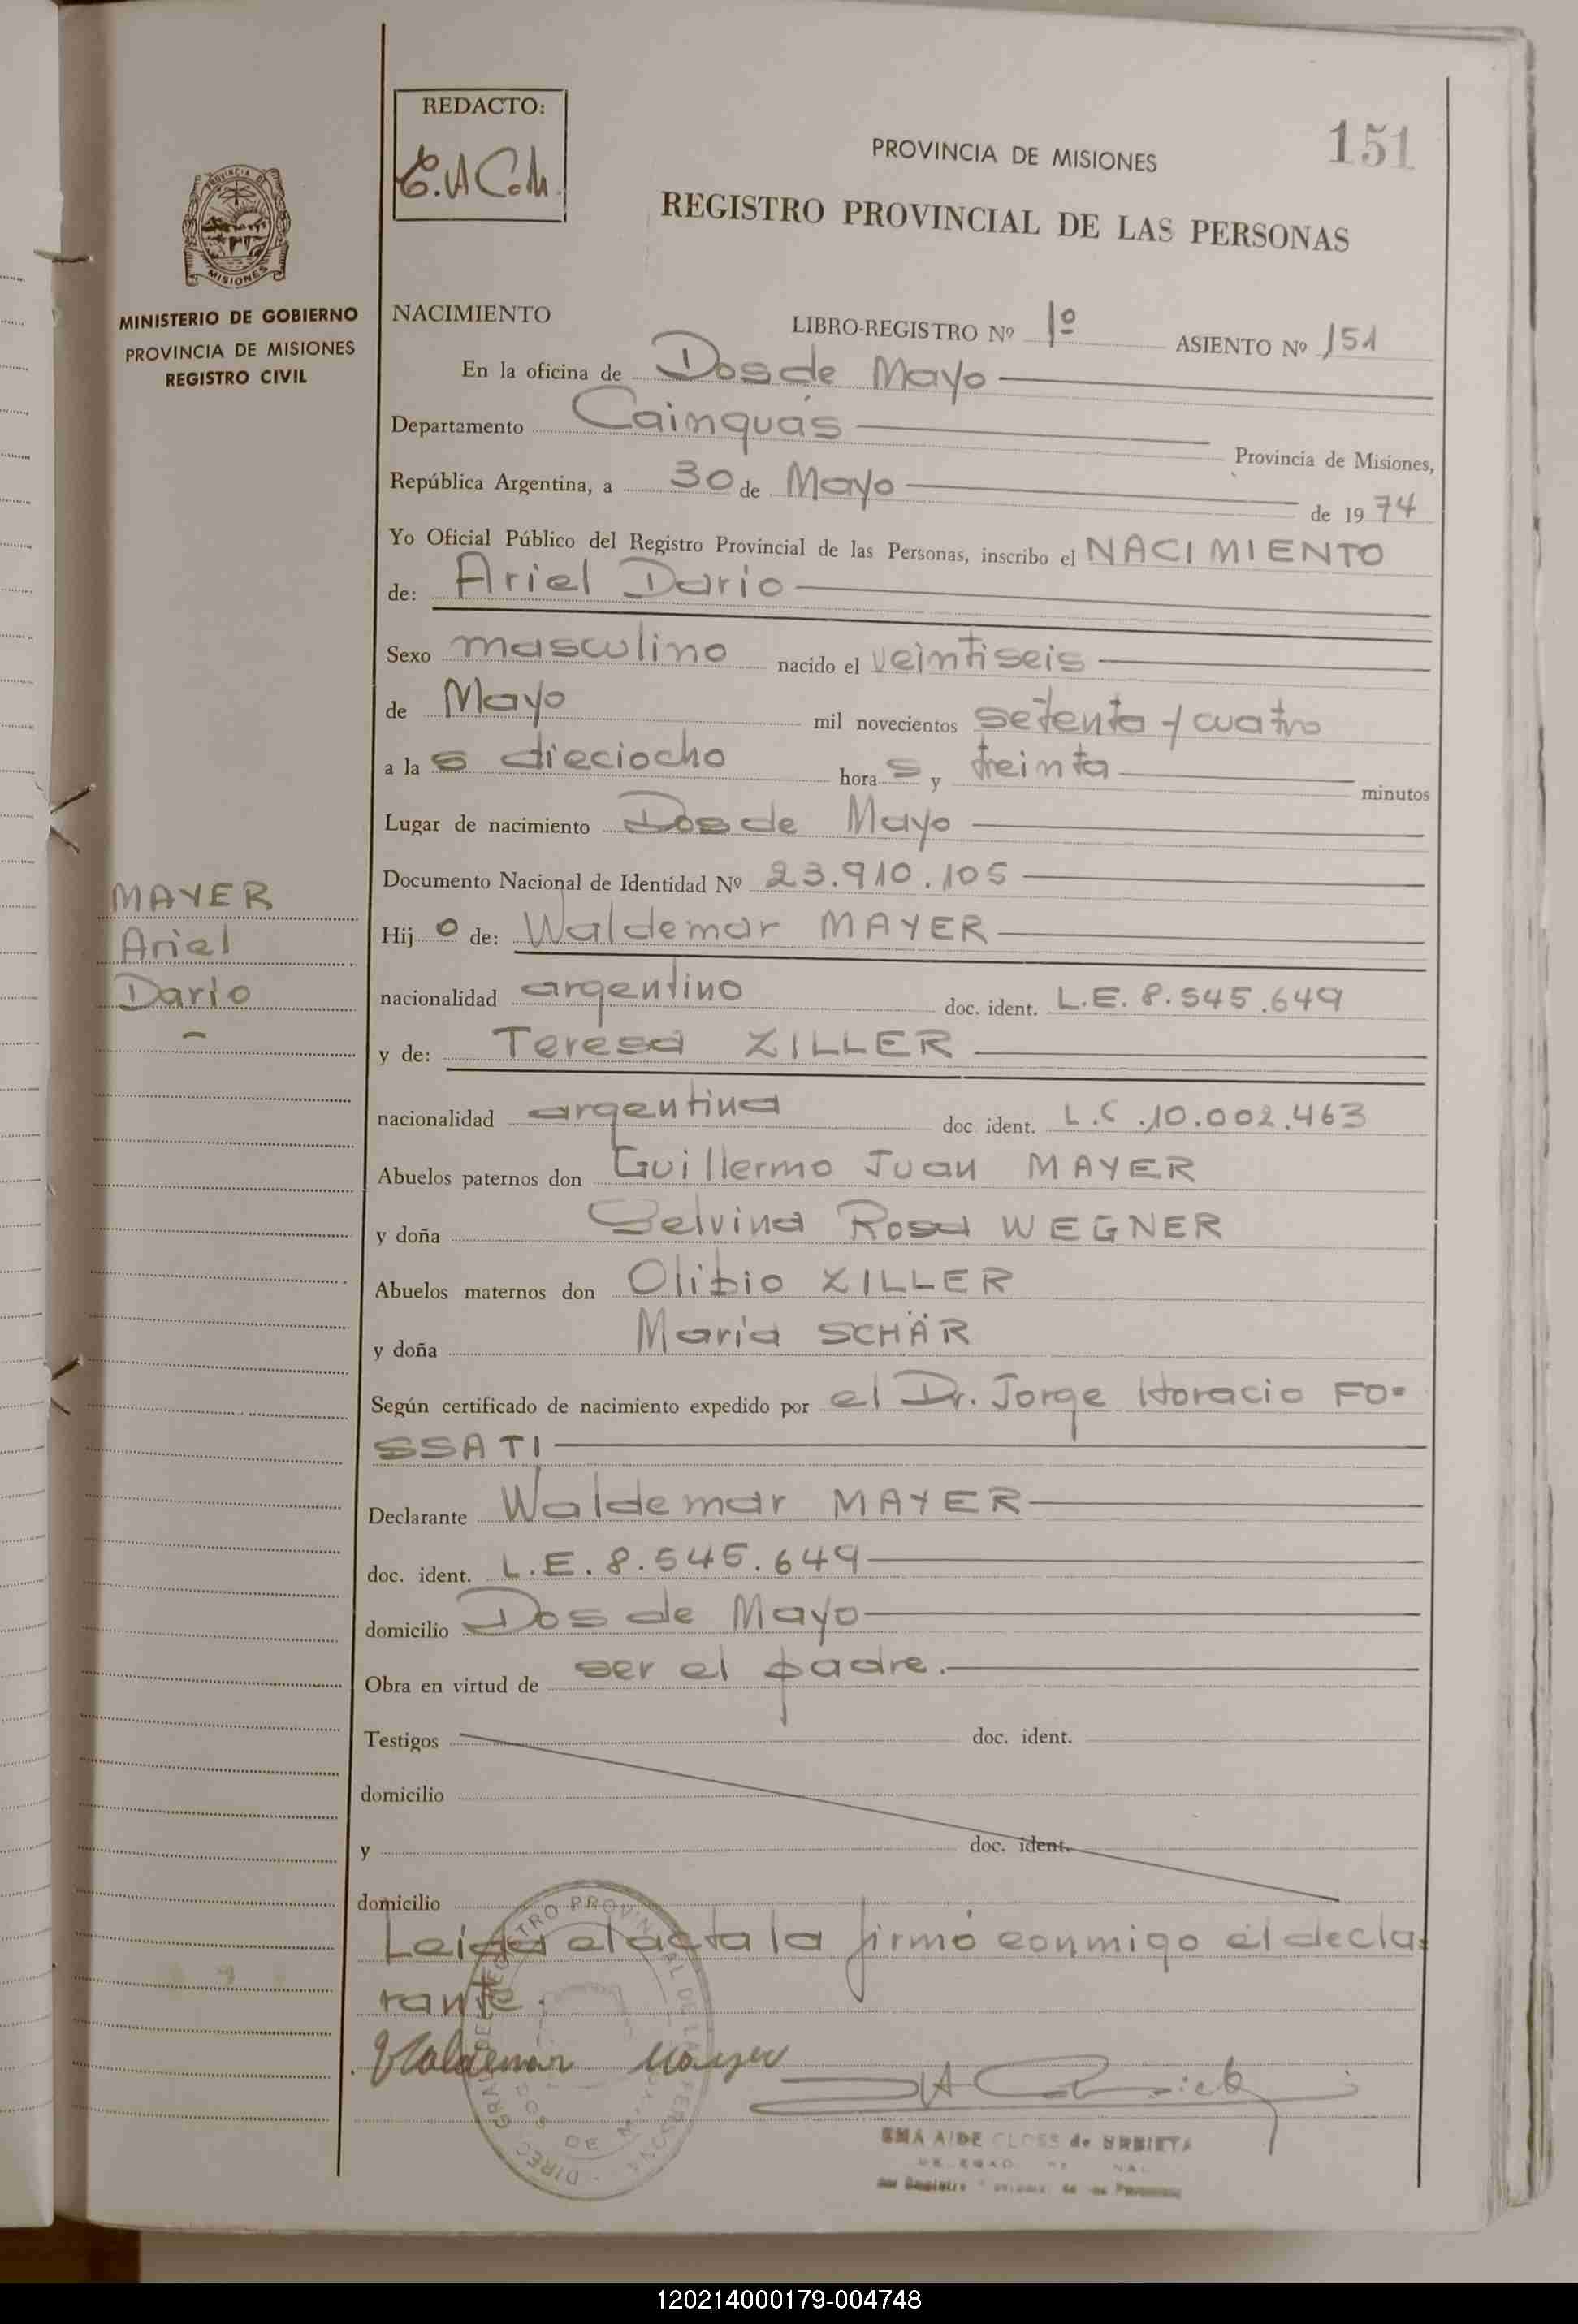 151
REDACTO:
PROVINCIA DE MISIONES
REGISTRO PROVINCIAL DE LAS PERSONAS
PROVINCIA DE
MISIONES
MINISTERIO DE GOBIERNO
PROVINCIA DE MISIONES
REGISTRO CIVIL
NACIMIENTO
LIBRO-REGISTRO Nº 1º ASIENTO Nº 151
En la oficina de Dos de Mayo
Departamento Cainguás Provincia de Misiones,
República Argentina, a 30 de Mayo de 1974
Yo Oficial Público del Registro Provincial de las Personas, inscribo el NACIMIENTO
de: Ariel Dario
Sexo masculino nacido el veintiseis
de Mayo mil novecientos setenta y cuatro
a las dieciocho horas y treinta minutos
Lugar de nacimiento Dos de Mayo
Documento Nacional de Identidad Nº 23.910.105
MAYER
Ariel
Dario
Hijo de: Waldemar MAYER
nacionalidad argentino doc. ident. L.E. 8.545.649
y de: Teresa ZILLER
nacionalidad argentina doc ident. L.C.10.002.463
Abuelos paternos don Guillermo Juan MAYER
y doña Selvina Rosa WEGNER
Abuelos maternos don Olibio ZILLER
y doña María SCHÄR
Según certificado de nacimiento expedido por el Dr. Jorge Horacio FO-
SSATI
Declarante Waldemar MAYER
doc. ident. L.E. 8.545.649
domicilio Dos de Mayo
Obra en virtud de ser el padre.
Testigos doc. ident.
domicilio
y doc. ident.
domicilio
Leída el acta la firmó conmigo el decla-
rante.
Waldemar Mayer
EMA AIDE de URBIETA
120214000179-004748